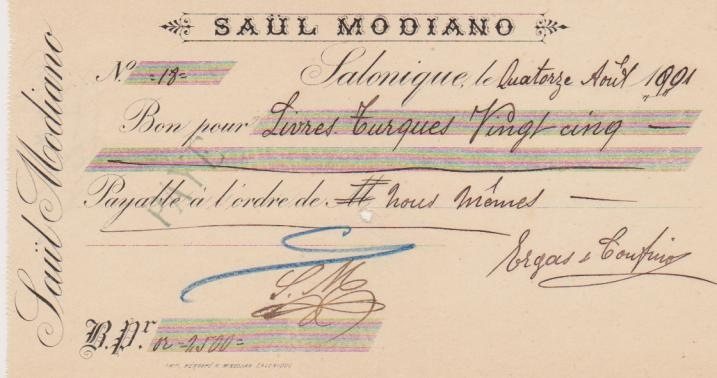 SAÜL MODIANO
Saül Modiano
Nº =18=
Salonique, le Quatorze Août 1901
Bon pour Livres Turques Vingt cinq —
PAYÉ
Payable à l'ordre de # nous mêmes —
Ergas & Confino
S. M.
B. Pr. or =2500=